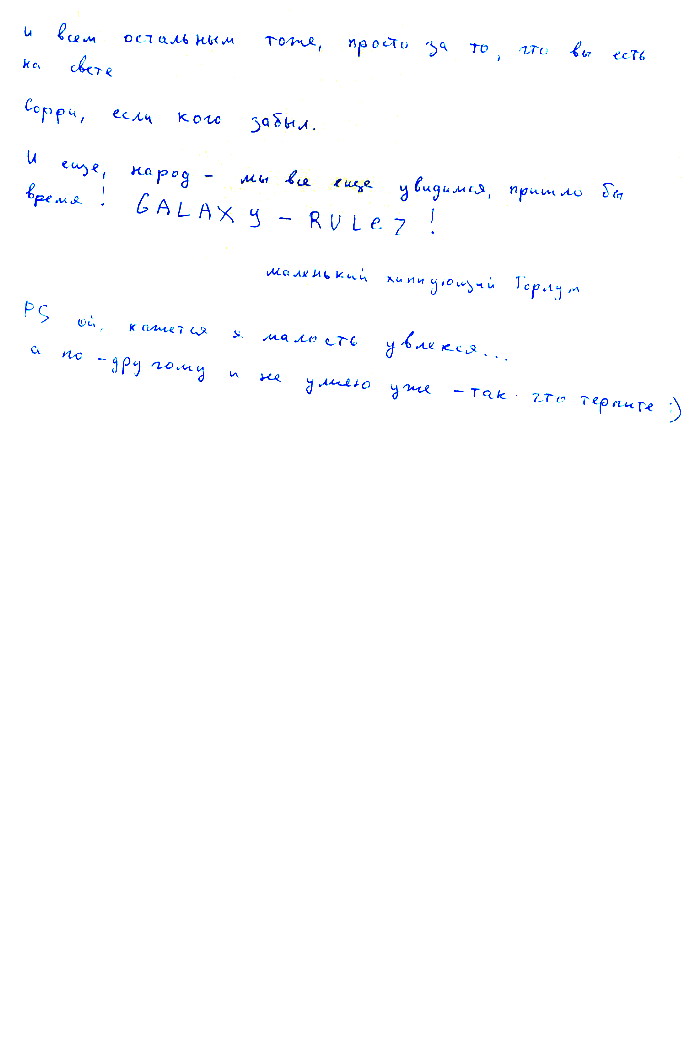 и всем остальным тоже, просто за то, что вы есть
на свете
Сорри, если кого забыл.
И еще, народ - мы все еще увидимся, пришло бы
время! GALAXY - RULeZ!
маленький хипующий Горлум
PS ой, кажется я малость увлекся...
а по-другому и не умею уже - так что терпите :)